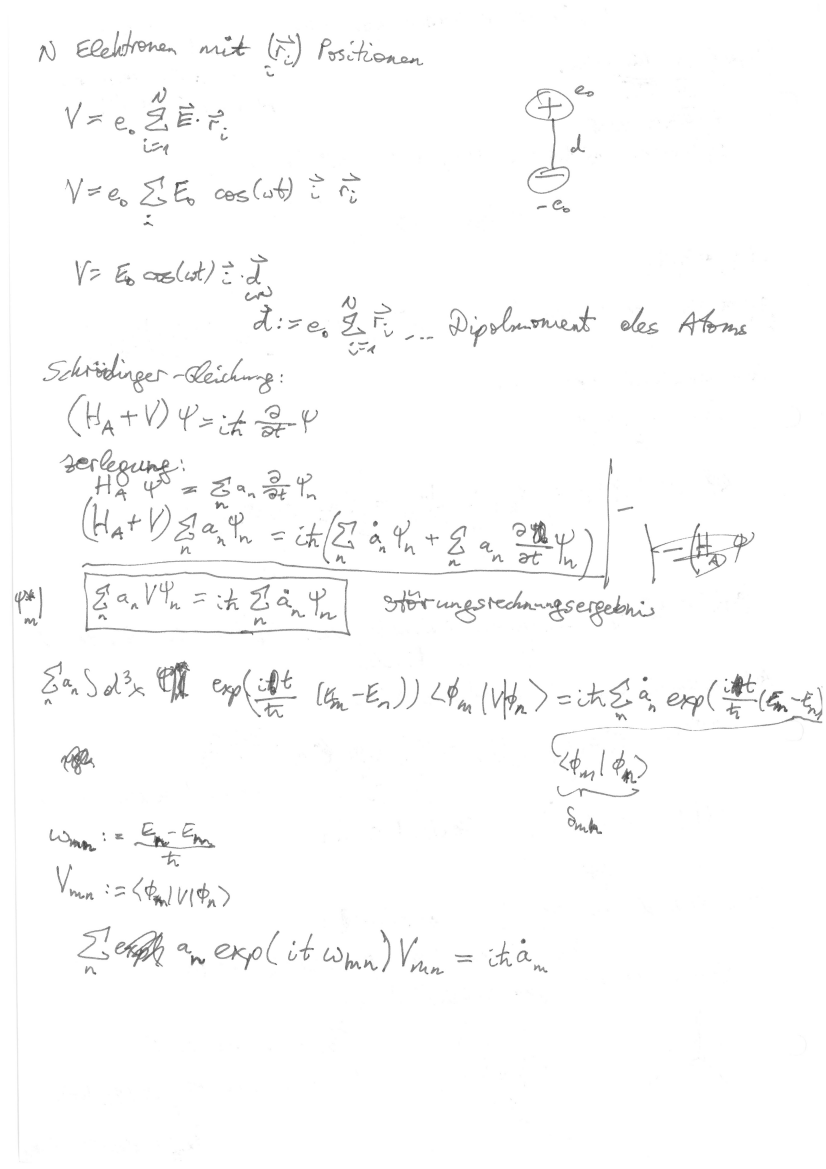 N Elektronen mit (r⃗_i)_i Positionen
V = e₀ Σ_{i=1}^{N} E⃗ · r⃗_i
e₀
d
-e₀
V = e₀ Σ_i E₀ cos(ωt) i⃗ r⃗_i
V = E₀ cos(ωt) i⃗ · d⃗
d⃗ := e₀ Σ_{i=1}^{N} r⃗_i ... Dipolmoment des Atoms
Schrödinger-Gleichung:
(H_A + V) Ψ = iℏ ∂/∂t Ψ
Zerlegung:
H_A Ψ = Σ_n a_n ∂/∂t Ψ_n
(H_A + V) Σ_n a_n Ψ_n = iℏ (Σ_n ȧ_n Ψ_n + Σ_n a_n ∂/∂t Ψ_n) | − | − (H_A Ψ
Ψ*_m | Σ_n a_n V Ψ_n = iℏ Σ_n ȧ_n Ψ_n störungsrechnungsergebnis
Σ_n a_n ∫ d³x exp(it/ℏ (E_m − E_n)) ⟨ϕ_m | V | ϕ_n⟩ = iℏ Σ_n ȧ_n exp(it/ℏ (E_m − E_n)
⟨ϕ_m | ϕ_n⟩
δ_mn
ω_mn := (E_n − E_m)/ℏ
V_mn := ⟨ϕ_m | V | ϕ_n⟩
Σ_n a_n exp(i t ω_mn) V_mn = iℏ ȧ_m